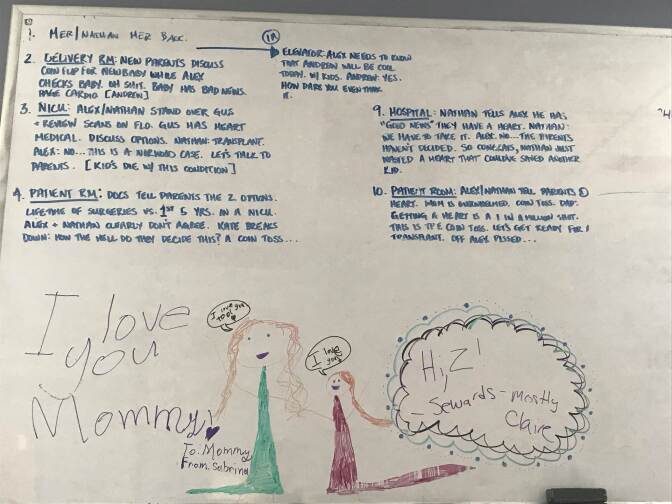 1. MER/NATHAN MER BACK.
1A
ELEVATOR: ALEX NEEDS TO KNOW
THAT ANDREW WILL BE COOL
TODAY. W/ KIDS. ANDREW: YES.
HOW DARE YOU EVEN THINK
IT.
2. DELIVERY RM: NEW PARENTS DISCUSS
COIN FLIP FOR NEW BABY WHILE ALEX
CHECKS BABY. OH SHIT. BABY HAS BAD NEWS.
PAGE CARDIO [ANDREW]
3. NICU: ALEX/NATHAN STAND OVER GUS
+ REVIEW SCANS ON FLO. GUS HAS HEART
MEDICAL. DISCUSS OPTIONS. NATHAN: TRANSPLANT.
ALEX: NO... THIS IS A NORWOOD CASE. LET'S TALK TO
PARENTS. [KIDS DIE W/ THIS CONDITION]
4. PATIENT RM: DOCS TELL PARENTS THE 2 OPTIONS.
LIFETIME OF SURGERIES VS. 1ST 5 YRS. IN A NICU.
ALEX + NATHAN CLEARLY DON'T AGREE. KATE BREAKS
DOWN: HOW THE HELL DO THEY DECIDE THIS? A COIN TOSS...
9. HOSPITAL: NATHAN TELLS ALEX HE HAS
"GOOD NEWS" THEY HAVE A HEART. NATHAN:
WE HAVE TO TAKE IT. ALEX: NO... THE PARENTS
HAVEN'T DECIDED. SO CONGRATS, NATHAN JUST
WASTED A HEART THAT COULD'VE SAVED ANOTHER
KID.
10. PATIENT ROOM: ALEX/NATHAN TELL PARENTS
HEART. MOM IS OVERWHELMED. COIN TOSS. DAD:
GETTING A HEART IS A 1 IN A MILLION SHOT.
THIS IS THE COIN TOSS. LET'S GET READY FOR
TRANSPLANT. OFF ALEX PISSED...
I love
you
Mommy
I love you
too!
I love
you
To: Mommy
From: Sabrina
Hi, Z!
- Sewards - mostly
Claire